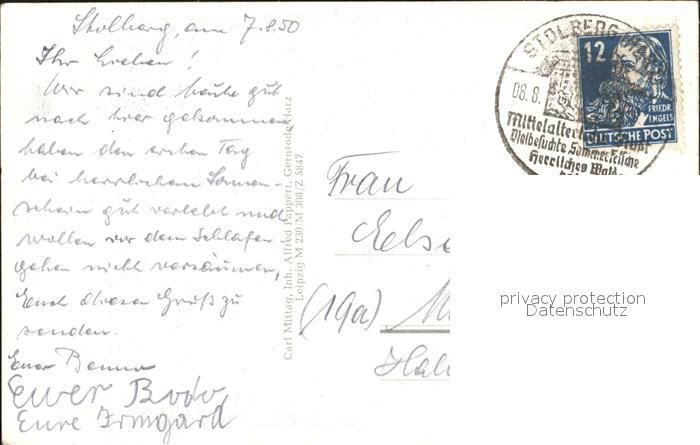 Stolberg, am 7.8.50
Ihr Lieben!
Wir sind heute gut
nach hier gekommen
haben den ersten Tag
bei herrlichem Sonnen-
schein gut verlebt und
wollen vor dem Schlafen-
gehen nicht versäumen,
Euch diesen Gruß zu
senden.
Euer Benno
Euer Bodo
Eure Irmgard
Carl Mittag, Inh. Alfred Pappert, Gernrode, Harz
Leipzig M 230/M 308/Z 5847
Frau
Else
(19a)
STOLBERG
08.8.
Mittelalterliche
Vielbesuchte Sommerfrische
Herrliches
12
FRIEDR.
ENGELS
DEUTSCHE POST
privacy protection
Datenschutz